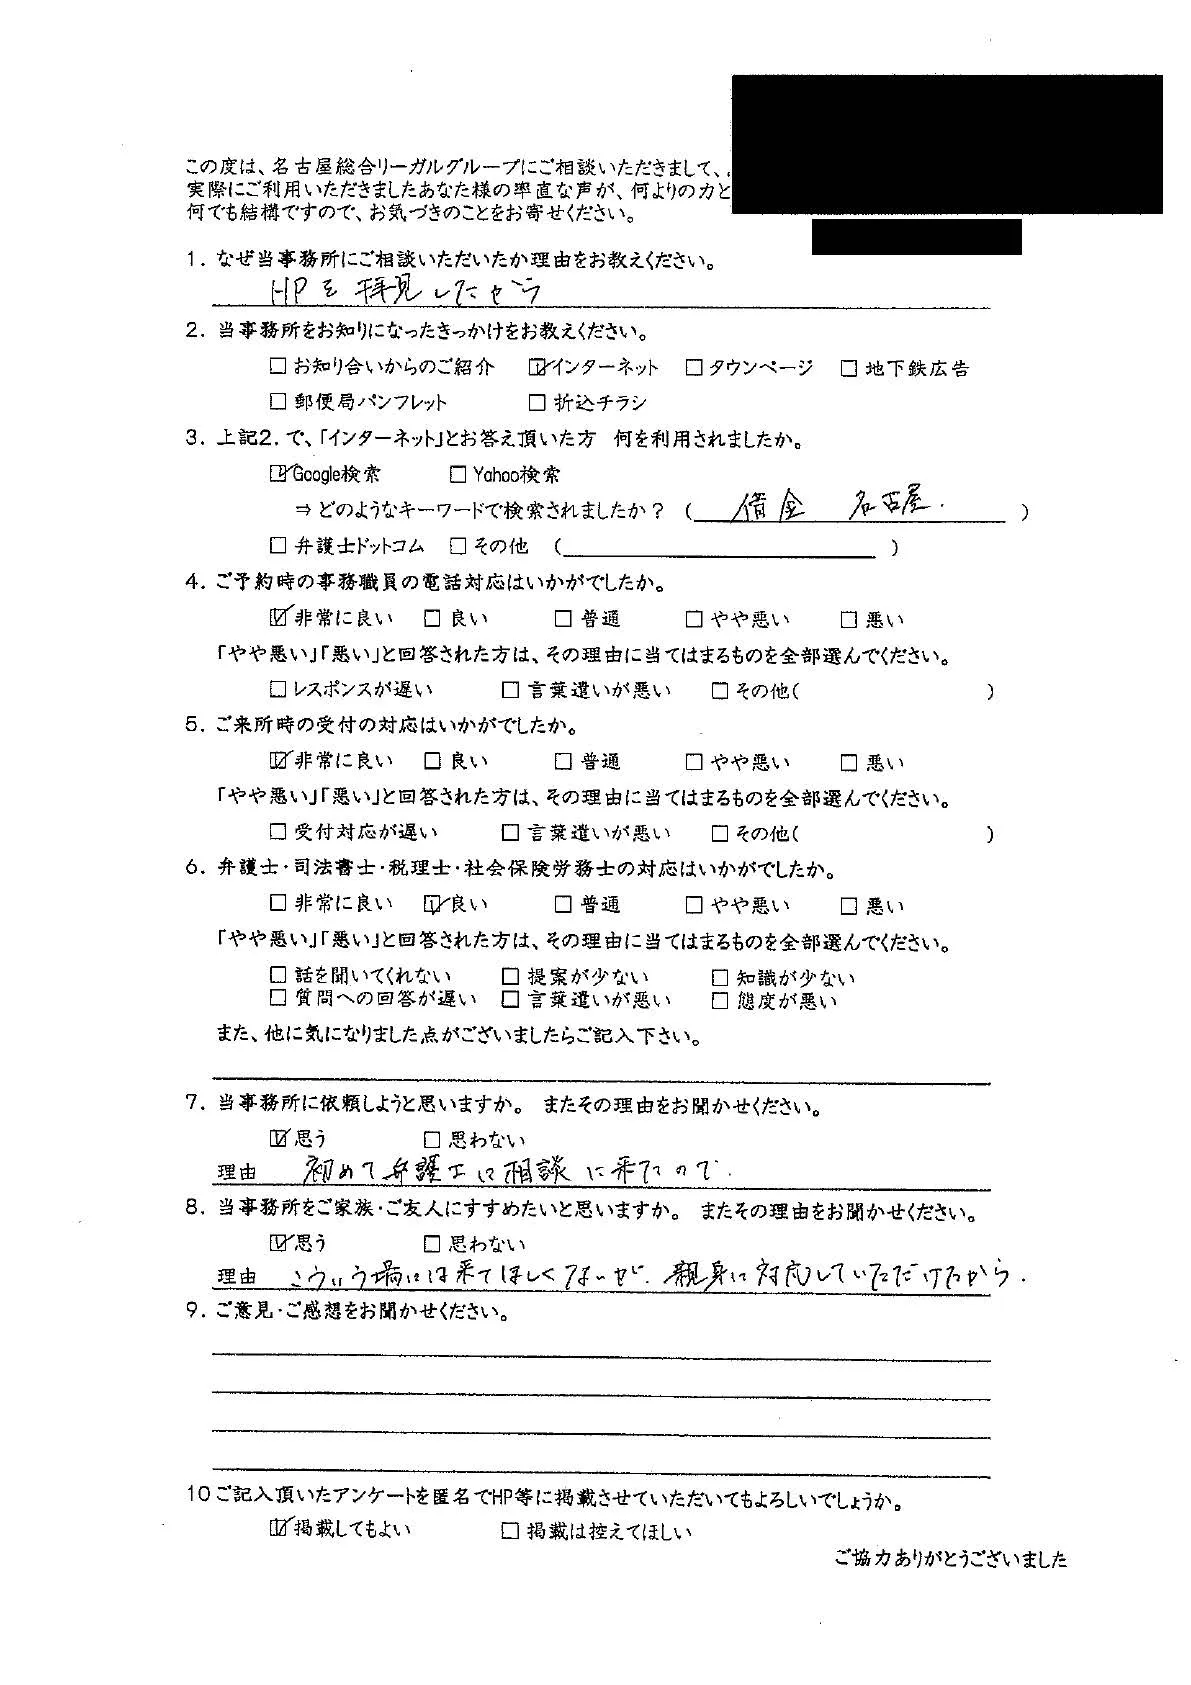 この度は、名古屋総合リーガルグループにご相談いただきまして、
実際にご利用いただきましたあなた様の率直な声が、何よりの力と
何でも結構ですので、お気づきのことをお寄せください。
1. なぜ当事務所にご相談いただいたか理由をお教えください。
HPを拝見したから
2. 当事務所をお知りになったきっかけをお教えください。
□ お知り合いからのご紹介 ☑インターネット □ タウンページ □ 地下鉄広告
□ 郵便局パンフレット □ 折込チラシ
3. 上記2. で、「インターネット」とお答え頂いた方 何を利用されましたか。
☑Google検索 □ Yahoo検索
⇒ どのようなキーワードで検索されましたか? ( 借金 名古屋. )
□ 弁護士ドットコム □ その他 ( )
4. ご予約時の事務職員の電話対応はいかがでしたか。
☑非常に良い □ 良い □ 普通 □ やや悪い □ 悪い
「やや悪い」「悪い」と回答された方は、その理由に当てはまるものを全部選んでください。
□ レスポンスが遅い □ 言葉遣いが悪い □ その他( )
5. ご来所時の受付の対応はいかがでしたか。
☑非常に良い □ 良い □ 普通 □ やや悪い □ 悪い
「やや悪い」「悪い」と回答された方は、その理由に当てはまるものを全部選んでください。
□ 受付対応が遅い □ 言葉遣いが悪い □ その他( )
6. 弁護士・司法書士・税理士・社会保険労務士の対応はいかがでしたか。
□ 非常に良い ☑良い □ 普通 □ やや悪い □ 悪い
「やや悪い」「悪い」と回答された方は、その理由に当てはまるものを全部選んでください。
□ 話を聞いてくれない □ 提案が少ない □ 知識が少ない
□ 質問への回答が遅い □ 言葉遣いが悪い □ 態度が悪い
また、他に気になりました点がございましたらご記入下さい。
7. 当事務所に依頼しようと思いますか。 またその理由をお聞かせください。
☑思う □ 思わない
理由 初めて弁護士に相談に来たので.
8. 当事務所をご家族・ご友人にすすめたいと思いますか。 またその理由をお聞かせください。
☑思う □ 思わない
理由 こういう場には来てほしくないが、親身に対応していただけたから.
9. ご意見・ご感想をお聞かせください。
10ご記入頂いたアンケートを匿名でHP等に掲載させていただいてもよろしいでしょうか。
☑掲載してもよい □ 掲載は控えてほしい
ご協力ありがとうございました